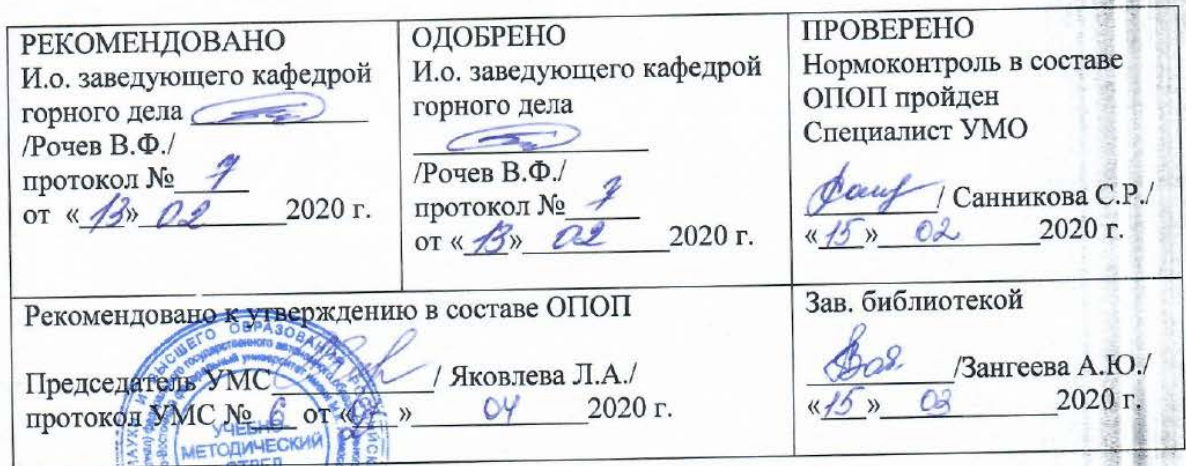 РЕКОМЕНДОВАНО
И.о. заведующего кафедрой
горного дела
/Рочев В.Ф./
протокол № 7
от «13» 02 2020 г.
ОДОБРЕНО
И.о. заведующего кафедрой
горного дела
/Рочев В.Ф./
протокол № 7
от «13» 02 2020 г.
ПРОВЕРЕНО
Нормоконтроль в составе
ОПОП пройден
Специалист УМО
/ Санникова С.Р./
«15» 02 2020 г.
Рекомендовано к утверждению в составе ОПОП
Председатель УМС / Яковлева Л.А./
протокол УМС № 6 от « » 04 2020 г.
УЧЕБНО
МЕТОДИЧЕСКИЙ
ОТДЕЛ
Зав. библиотекой
/Зангеева А.Ю./
«15» 02 2020 г.